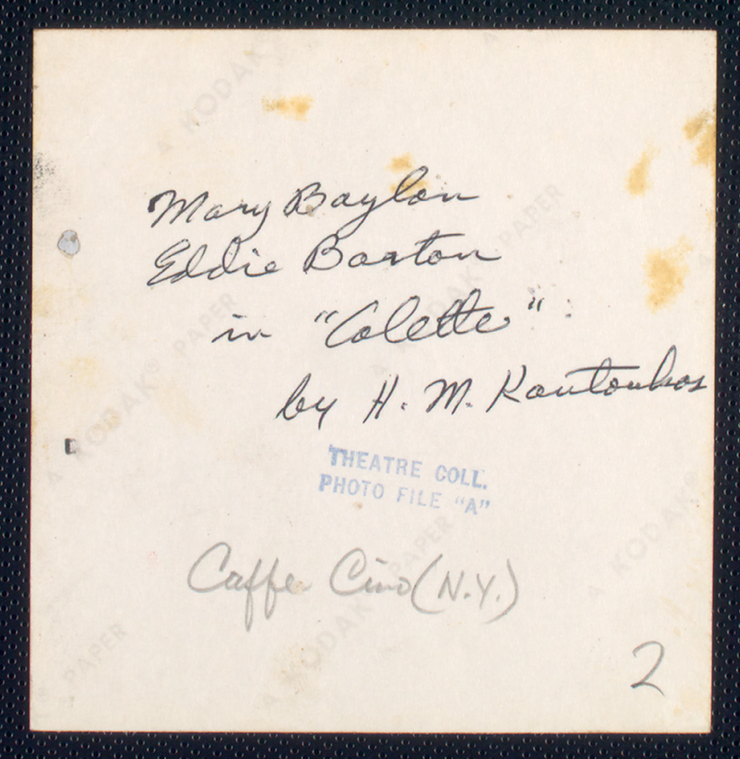 Mary Boylan
Eddie Barton
in "Colette"
by H. M. Koutoukas
THEATRE COLL.
PHOTO FILE "A"
Caffe Cino (N.Y.)
2
A KODAK
PAPER
KODAK® PAPER
A KODAK PAPER
A KODAK®
PAPER